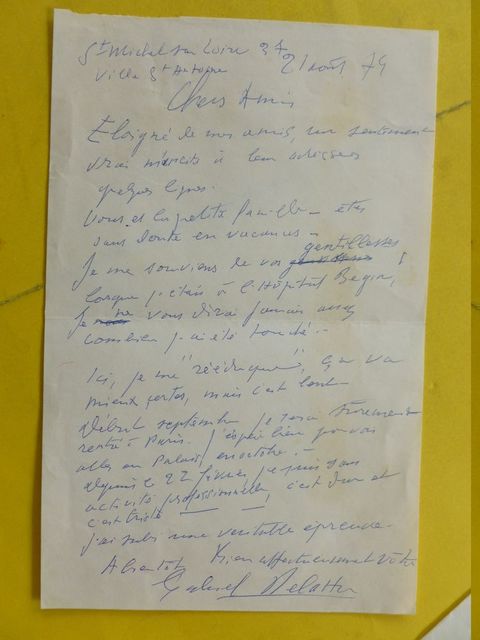 St Michel sur Loire 37
Villa St Antoine 21 août 74
Chers Amis
Eloigné de mes amis, un sentiment
vrai m'incite à leur adresser
quelques lignes.
Vous et la petite famille êtes
sans doute en vacances -
Je me souviens de vos gentillesses
lorsque j'étais à l'Hôpital Begin,
Je ne vous dirai jamais assez
combien j'ai été touché. -
Ici, je me "rééduque", ça va
mieux certes, mais c'est lent
Début septembre je serai sûrement
rentré à Paris. J'espère bien pouvoir
aller au Palais, en octobre. -
depuis le 22 février je suis sans
activité professionnelle, c'est dur et
c'est triste
J'ai subi une véritable épreuve -
A bientôt, bien affectueusement vôtre
Gabriel Delattre